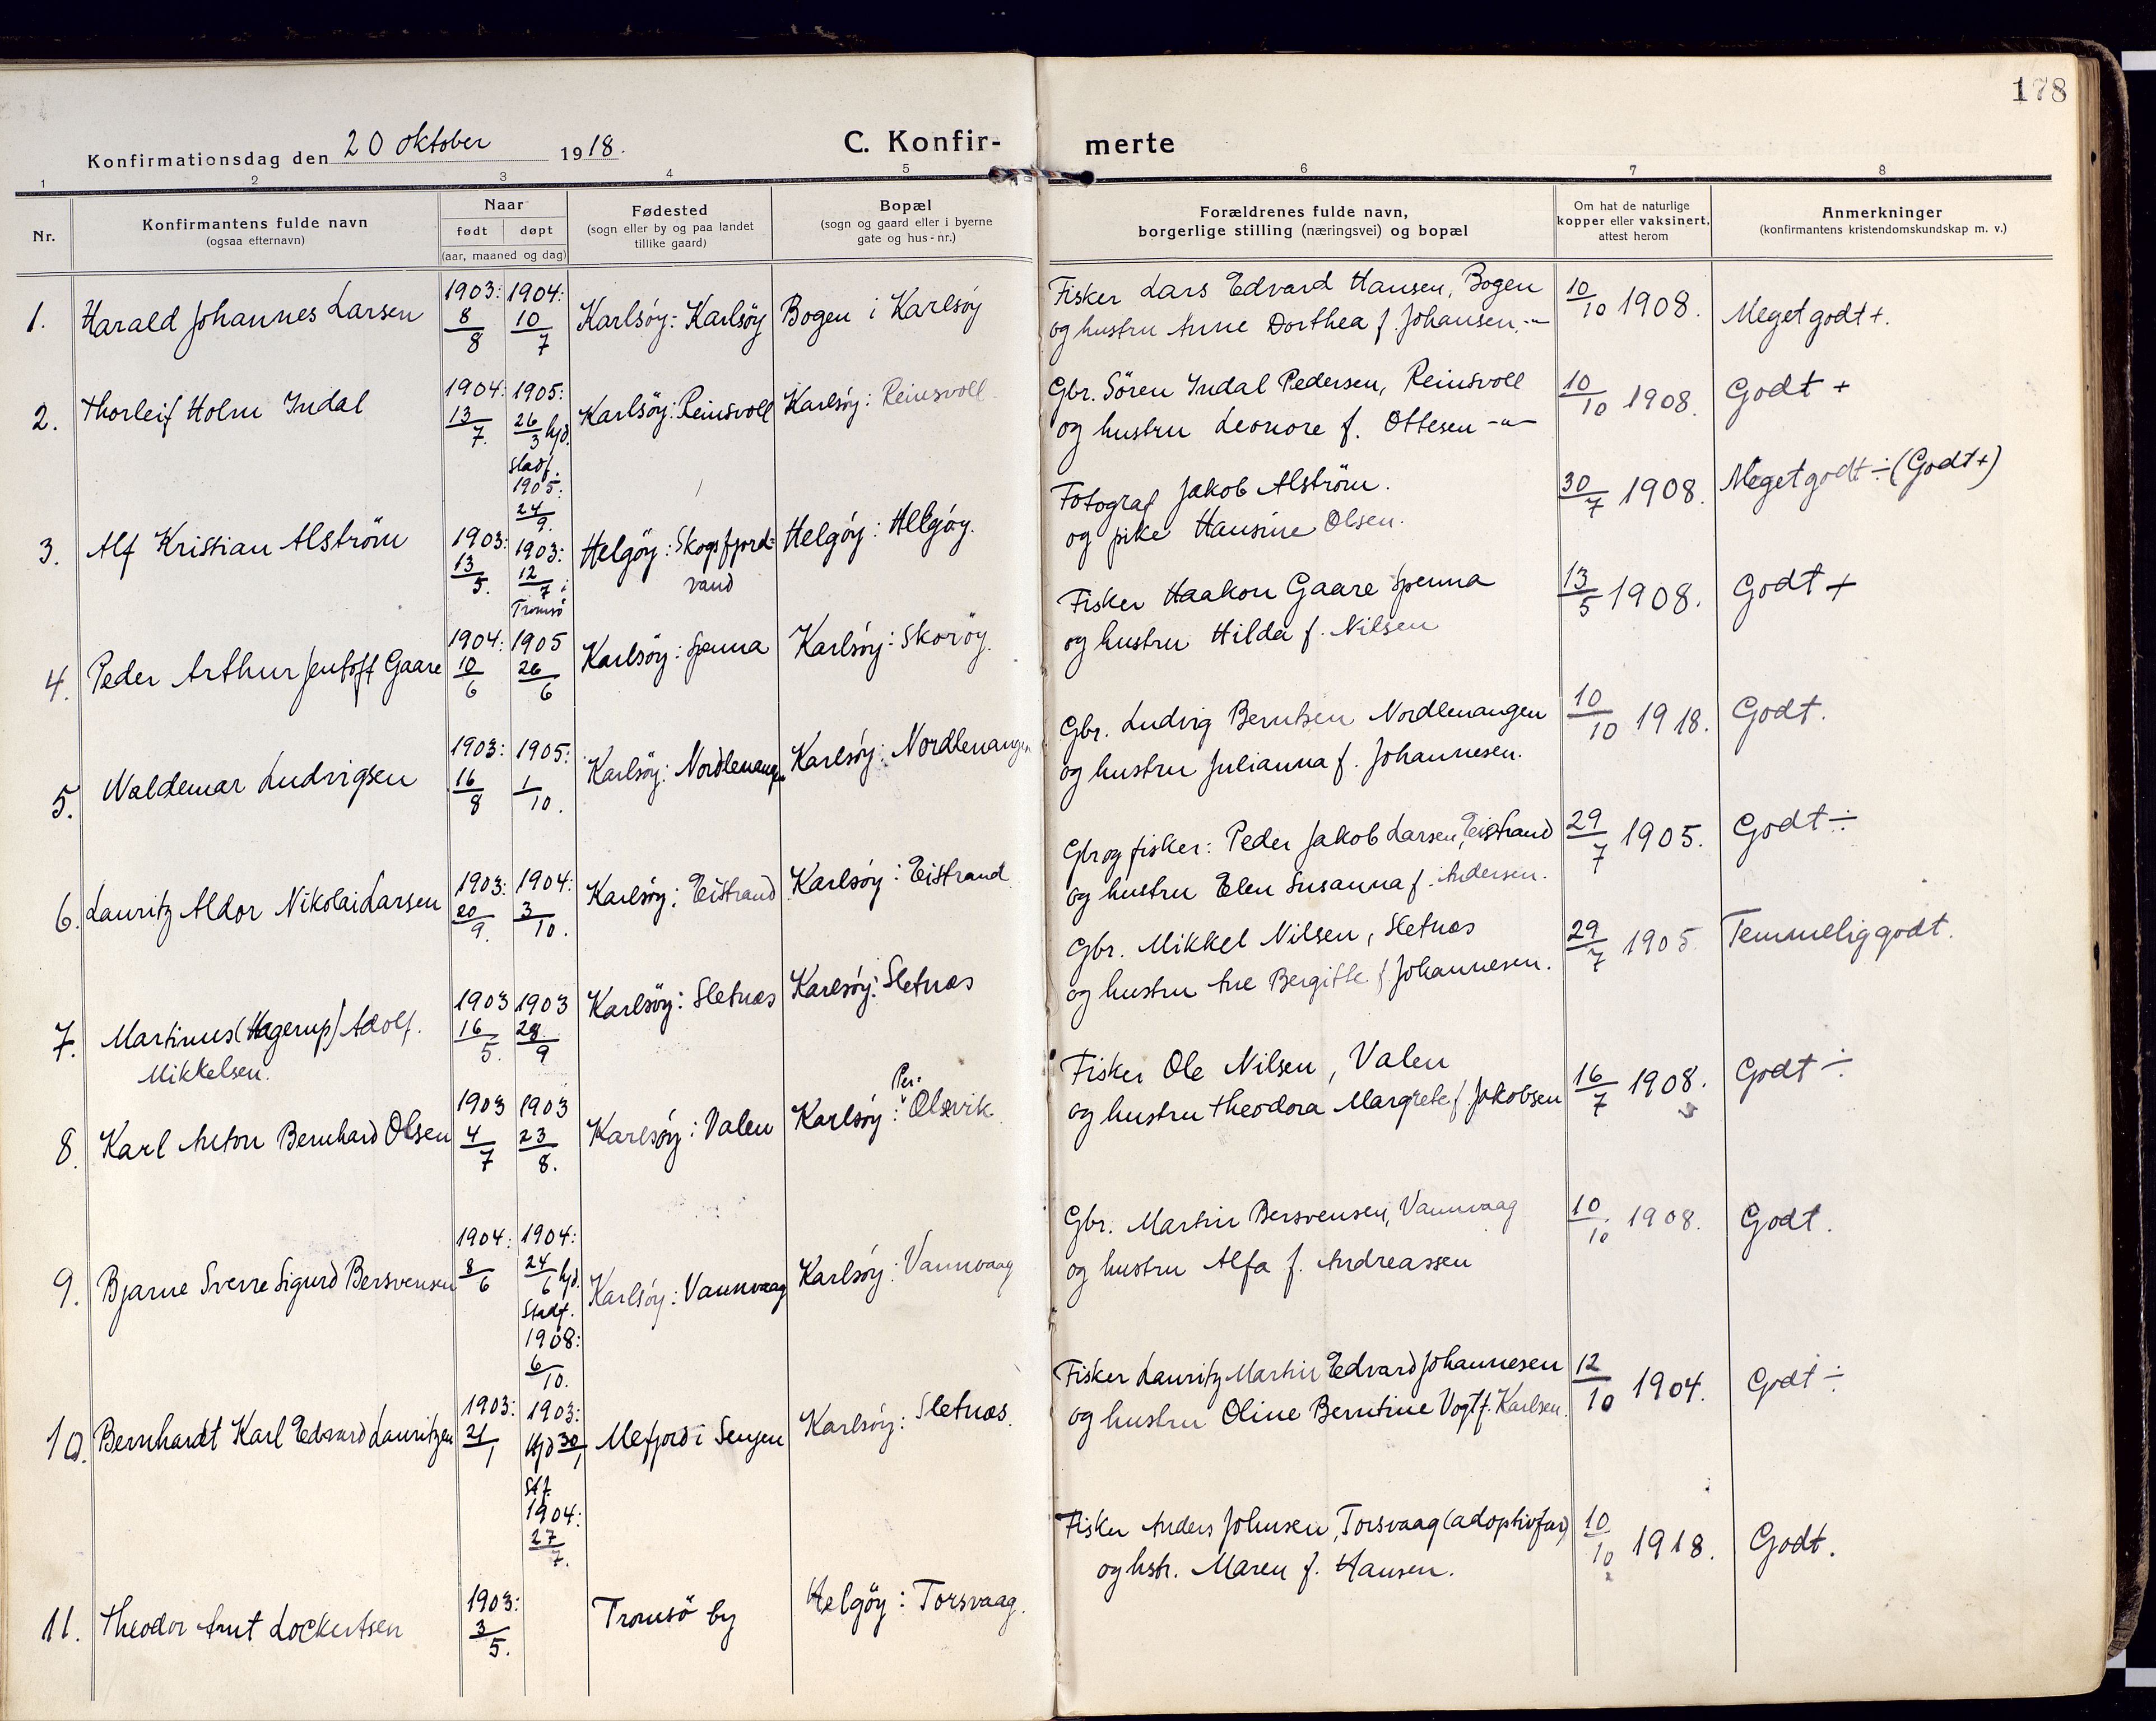 178
Konfirmationsdag den 20 oktober 1918.
C. Konfir-
merte
1 2 3 4 5 6 7 8
Nr.
Konfirmantens fulde navn
(ogsaa efternavn)
Naar
født døpt
(aar, maaned og dag)
Fødested
(sogn eller by og paa landet
tillike gaard)
Bopæl
(sogn og gaard eller i byerne
gate og hus-nr.)
Forældrenes fulde navn,
borgerlige stilling (næringsvei) og bopæl
Om hat de naturlige
kopper eller vaksinert,
attest herom
Anmerkninger
(konfirmantens kristendomskundskap m. v.)
1. Harald Johannes Larsen
1903: 8/8
1904: 10/7
Karlsöy: Karlsöy
Bogen i Karlsöy
Fisker Lars Edvard Hansen, Bogen
og hustru Anne Dorthea f. Johansen. -"-
10/10 1908.
Meget godt +.
2. Thorleif Holm Indal
1904: 13/7.
1905: 26/3 hjd.
Stadf.
1905:
24/9.
Karlsöy: Reinsvoll
Karlsöy: Reinsvoll.
Gbr. Sören Indal Pedersen, Reinsvoll
og hustru Leonore f. Ottesen -"-
10/10 1908.
Godt +
3. Alf Kristian Alström
1903: 13/5.
1903: 12/7 i
Tromsö
Helgöy: Skogsfjord=
vand
Helgöy: Helgöy.
Fotograf Jakob Alström.
og pike Hansine Olsen.
30/7 1908.
Meget godt ÷ (Godt +)
4. Peder Arthur Jentoft Gaare
1904: 10/6
1905 26/6
Karlsöy: Spenna
Karlsöy: Skoröy.
Fisker Haakon Gaare Spenna
og hustru Hilda f. Nilsen
13/5 1908.
Godt +
5. Waldemar Ludvigsen
1903: 16/8
1905: 1/10.
Karlsöy: Nordlenangen
Karlsöy: Nordlenangen
Gbr. Ludvig Berntsen Nordlenangen
og hustru Julianna f. Johannesen.
10/10 1918.
Godt.
6. Lauritz Aldor Nikolai Larsen
1903: 20/9.
1904: 3/10.
Karlsöy: Eistrand
Karlsöy: Eistrand.
Gbr og fisker: Peder Jakob Larsen, Eistrand
og hustru Elen Susanna f. Andersen.
29/7 1905.
Godt ÷
7. Martinus (Hagerup) Adolf.
Mikkelsen.
1903 16/5.
1903 28/9
Karlsöy: Sletnæs
Karlsöy: Sletnæs
Gbr. Mikkel Nilsen, Sletnæs
og hustru Ane Bergitte f Johannesen.
29/7 1905.
Temmelig godt.
8. Karl Anton Bernhard Olsen
1903 4/7
1903 23/8.
Karlsöy: Valen
Per=
Karlsöy: Olsvik.
Fisker Ole Nilsen, Valen
og hustru Theodora Margrete f Jakobsen
16/7 1908.
Godt ÷
9. Bjarne Sverre Sigurd Bersvensen
1904: 8/6
1904: 24/6 hjd.
Stadf.
1908:
6/10.
Karlsöy: Vannvaag
Karlsöy: Vannvaag
Gbr. Martin Bersvensen, Vannvaag
og hustru Alfa f. Andreassen
10/10 1908.
Godt.
10. Bernhardt Karl Edvard Lauritzen
1903: 21/1
1903:
Hjd 30/1
Stf.
1904:
27/7.
Mefjord i Senjen
Karlsöy: Sletnæs.
Fisker Lauritz Martin Edvard Johannesen
og hustru Oline Berntine Vogt f. Karlsen.
12/10 1904.
Godt ÷
11. Theodor Arnt Lockertsen
1903: 3/5.
Tromsö by
Helgöy: Torsvaag.
Fisker Anders Johnsen, Torsvaag (adoptivfar)
og hstr. Maren f. Hansen.
10/10 1918.
Godt.